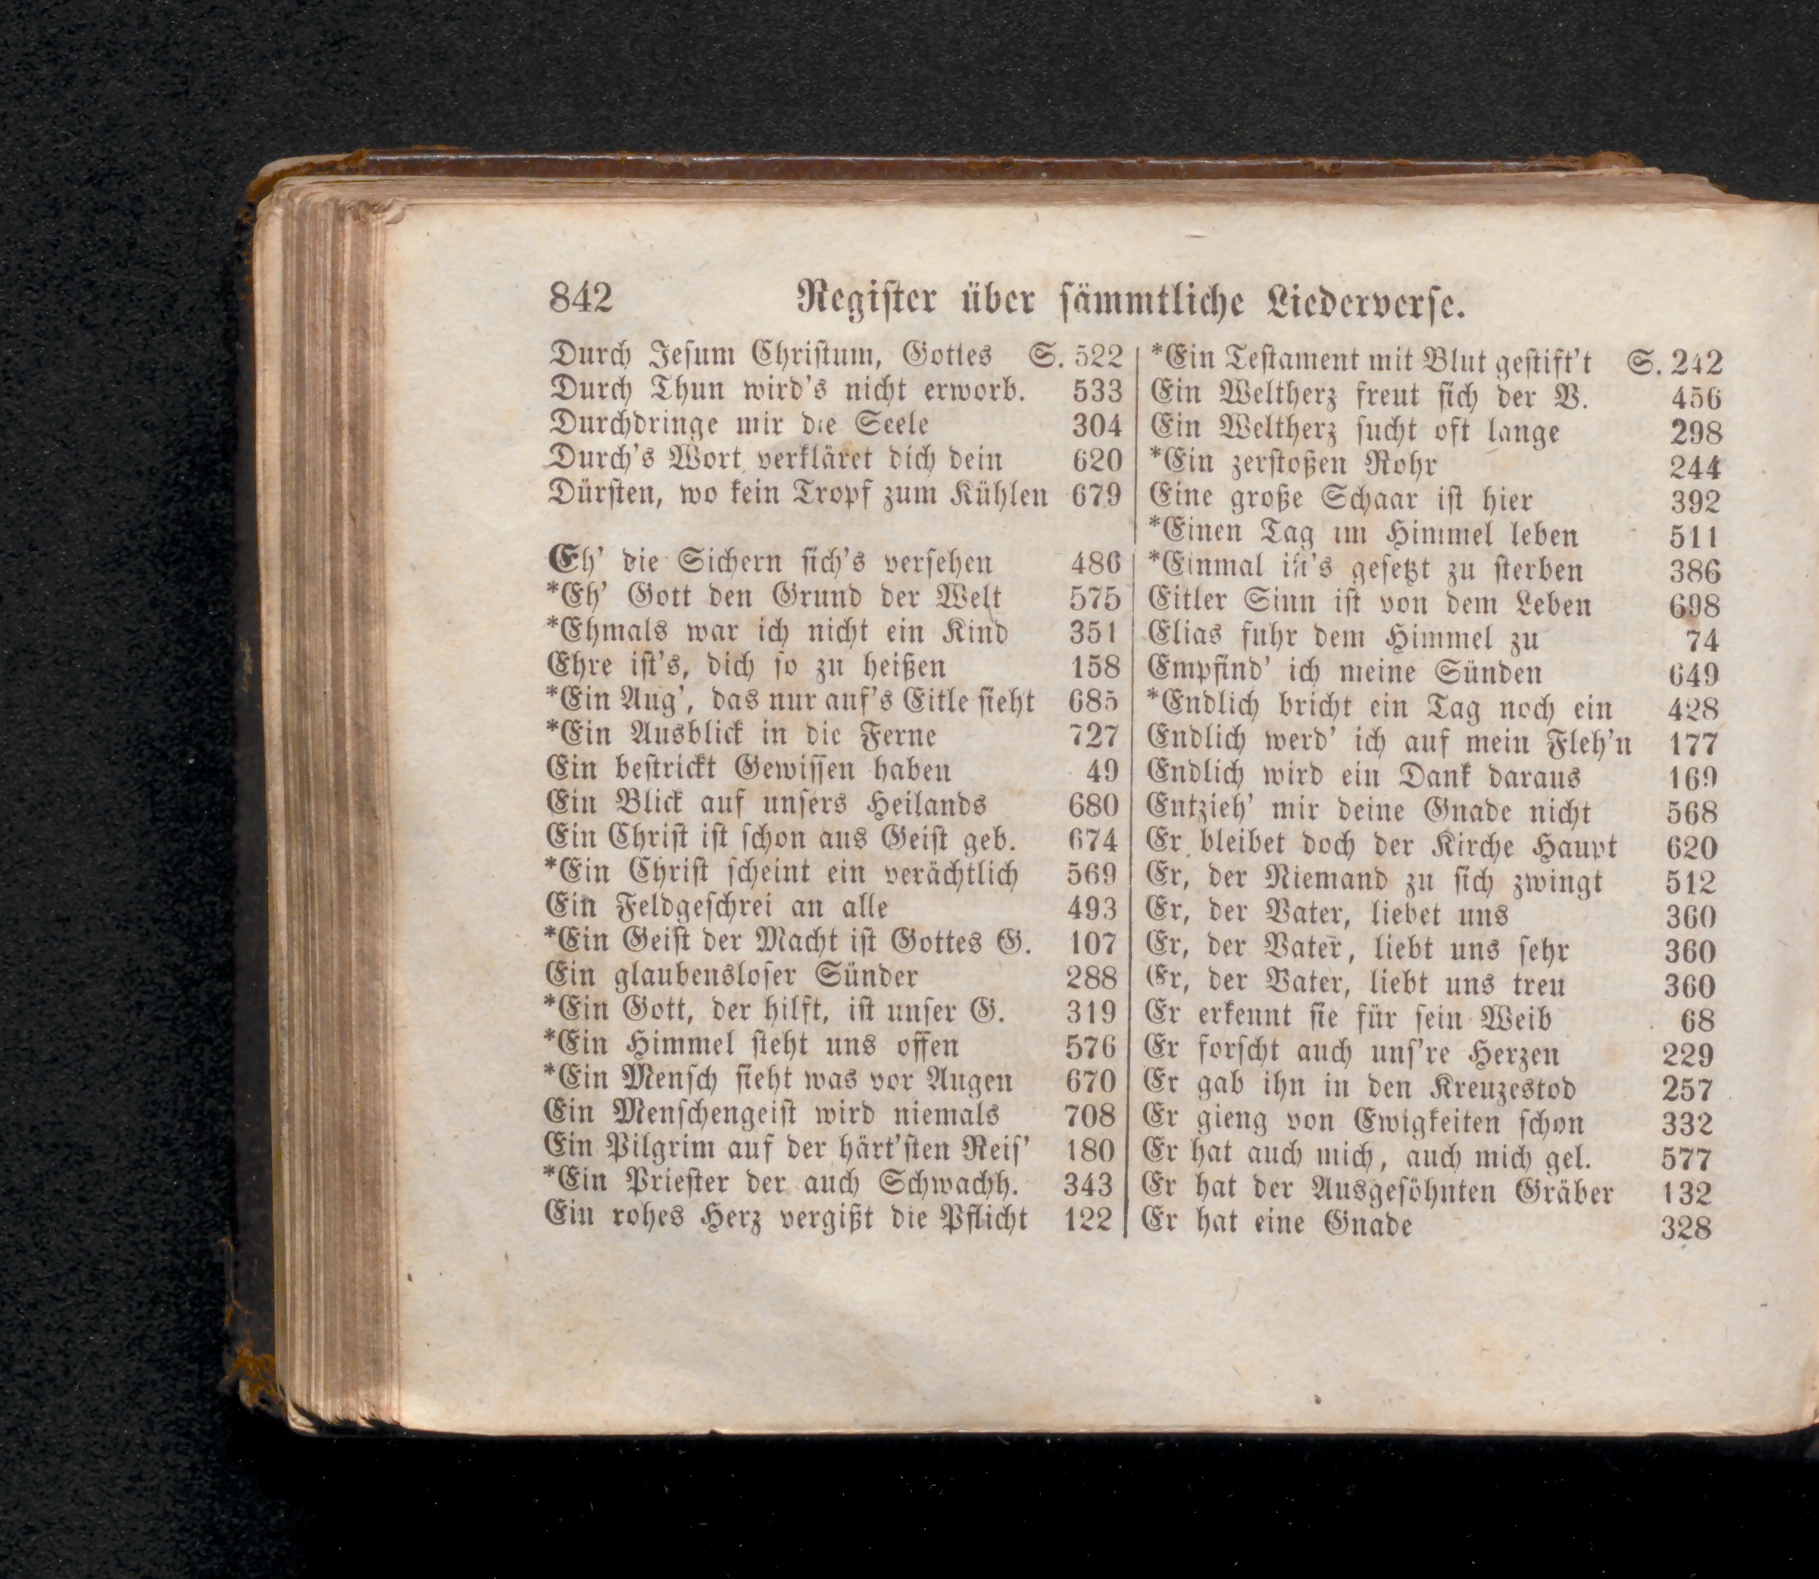 842 Regiſter über ſämmtliche Liederverſe.
Durch Jeſum Chriſtum, Gottes S. 522
Durch Thun wird's nicht erworb. 533
Durchdringe mir die Seele 304
Durch's Wort verkläret dich dein 620
Dürſten, wo kein Tropf zum Kühlen 679
Eh' die Sichern ſich's verſehen 486
*Eh' Gott den Grund der Welt 575
*Ehmals war ich nicht ein Kind 351
Ehre iſt's, dich ſo zu heißen 158
*Ein Aug', das nur auf's Eitle ſieht 685
*Ein Ausblick in die Ferne 727
Ein beſtrickt Gewiſſen haben 49
Ein Blick auf unſers Heilands 680
Ein Chriſt iſt ſchon aus Geiſt geb. 674
*Ein Chriſt ſcheint ein verächtlich 569
Ein Feldgeſchrei an alle 493
*Ein Geiſt der Macht iſt Gottes G. 107
Ein glaubensloſer Sünder 288
*Ein Gott, der hilft, iſt unſer G. 319
*Ein Himmel ſteht uns offen 576
*Ein Menſch ſieht was vor Augen 670
Ein Menſchengeiſt wird niemals 708
Ein Pilgrim auf der härt'ſten Reiſ' 180
*Ein Prieſter der auch Schwachh. 343
Ein rohes Herz vergißt die Pflicht 122
*Ein Teſtament mit Blut geſtift't S. 242
Ein Weltherz freut ſich der V. 456
Ein Weltherz ſucht oft lange 298
*Ein zerſtoßen Rohr 244
Eine große Schaar iſt hier 392
*Einen Tag im Himmel leben 511
*Einmal iſt's geſetzt zu ſterben 386
Eitler Sinn iſt von dem Leben 698
Elias fuhr dem Himmel zu 74
Empfind' ich meine Sünden 649
*Endlich bricht ein Tag noch ein 428
Endlich werd' ich auf mein Fleh'n 177
Endlich wird ein Dank daraus 169
Entzieh' mir deine Gnade nicht 568
Er bleibet doch der Kirche Haupt 620
Er, der Niemand zu ſich zwingt 512
Er, der Vater, liebet uns 360
Er, der Vater, liebt uns ſehr 360
Er, der Vater, liebt uns treu 360
Er erkennt ſie für ſein Weib 68
Er forſcht auch unſ're Herzen 229
Er gab ihn in den Kreuzestod 257
Er gieng von Ewigkeiten ſchon 332
Er hat auch mich, auch mich gel. 577
Er hat der Ausgeſöhnten Gräber 132
Er hat eine Gnade 328